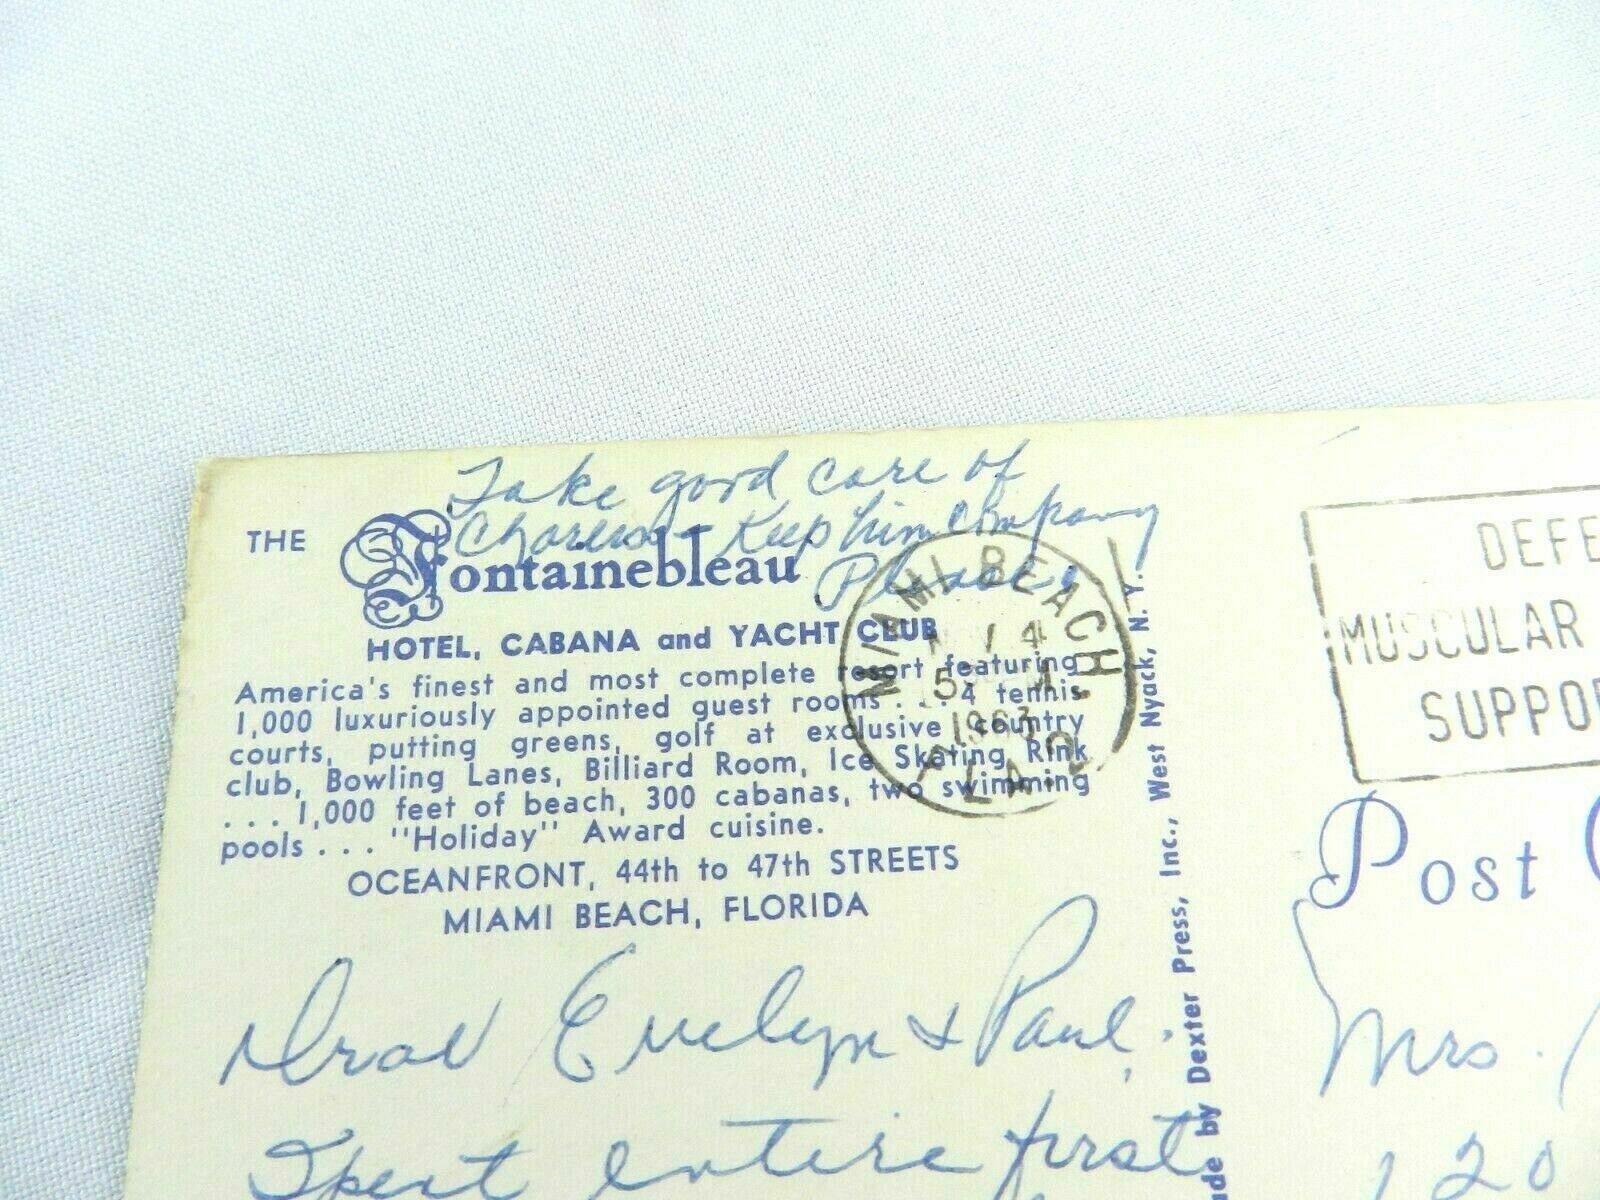 Take good care of
Charles - Keep him company
Please.
THE Fontainebleau
HOTEL, CABANA and YACHT CLUB
America's finest and most complete resort featuring
1,000 luxuriously appointed guest rooms . . . 4 tennis
courts, putting greens, golf at exclusive country
club, Bowling Lanes, Billiard Room, Ice Skating Rink
. . . 1,000 feet of beach, 300 cabanas, two swimming
pools . . . "Holiday" Award cuisine.
OCEANFRONT, 44th to 47th STREETS
MIAMI BEACH, FLORIDA
Dear Evelyn & Paul,
Spent entire first
MIAMI BEACH
4
5
1963
FLA. 2
by Dexter Press, Inc., West Nyack, N. Y.
DEFE
MUSCULAR
SUPPO
Post
Mrs.
120